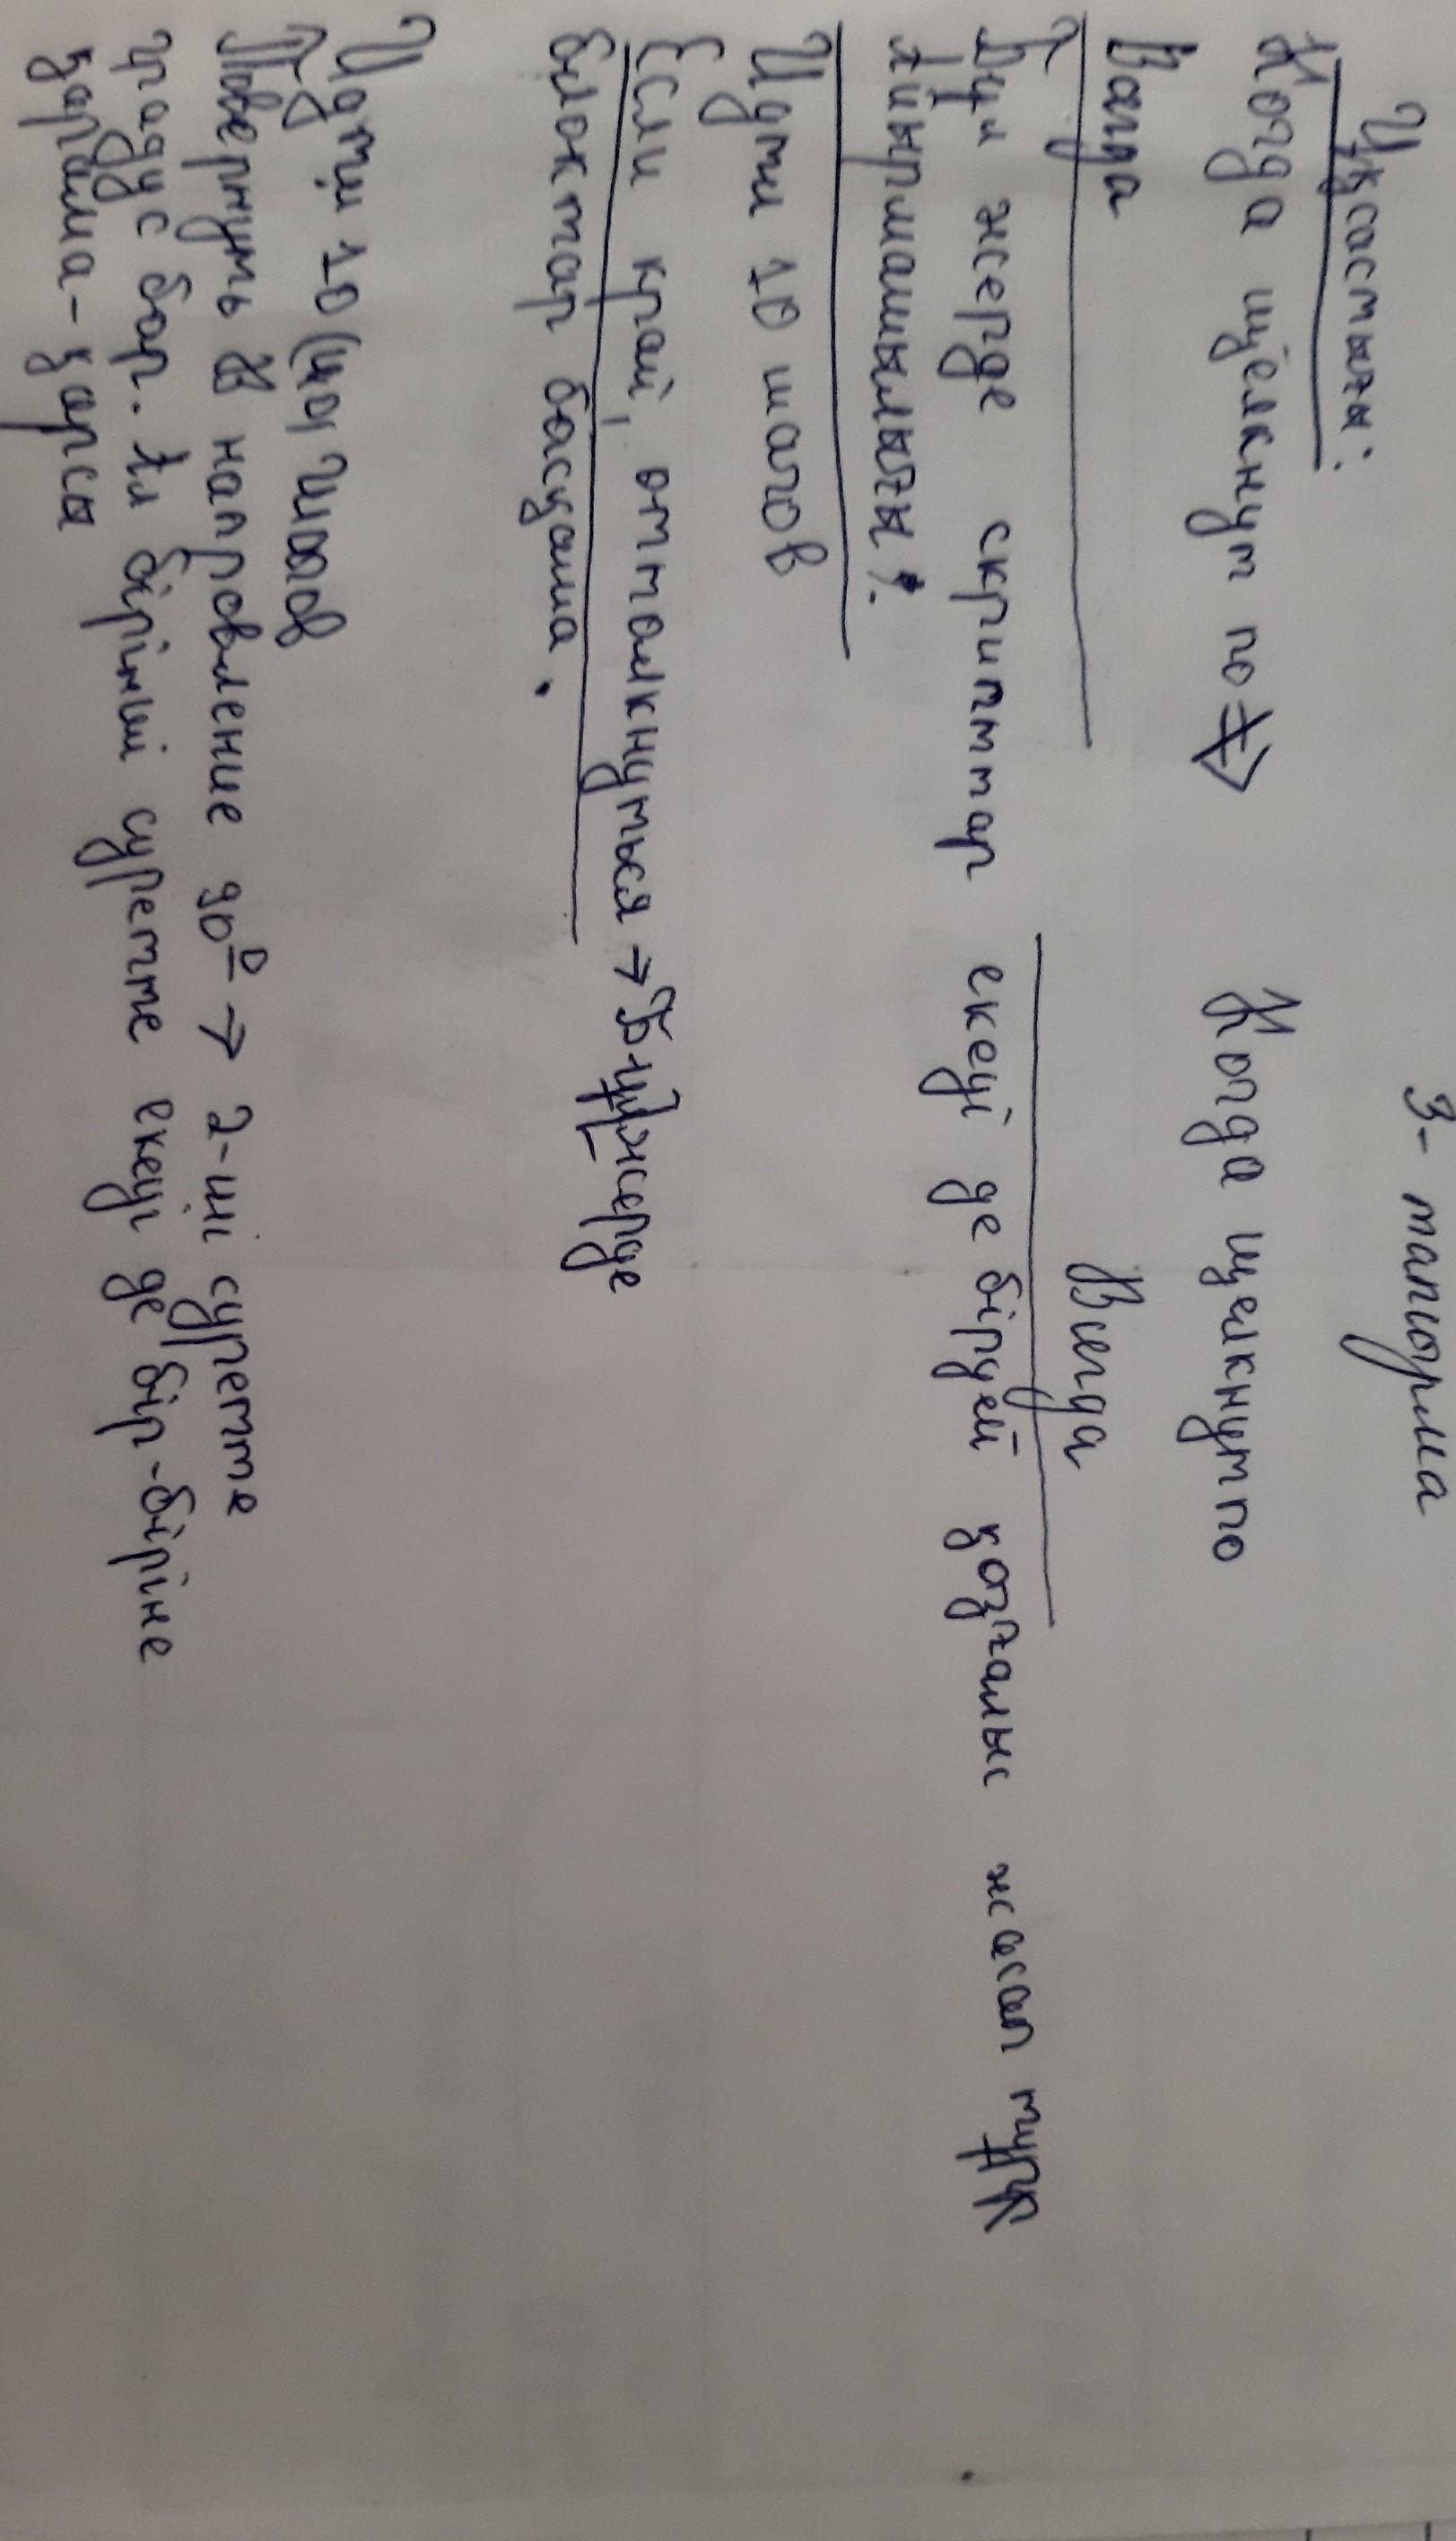 3- тапсырма
Ұқсастығы:
Когда щёлкнут по Когда щелкнут по
Всегда Всегда
Бұл жерде скриптар екеуі де бірдей қозғалыс жасап тұр
Идти 10 шагов
Если край, оттолкнуться → Бұл жерде
блоктар басқаша.
Идти 10 (4) шагов
Повернуть в направление 90° → 2-ші суретте
градус бар. Ал бірінші суретте екеуі де бір-біріне
қарама-қарсы